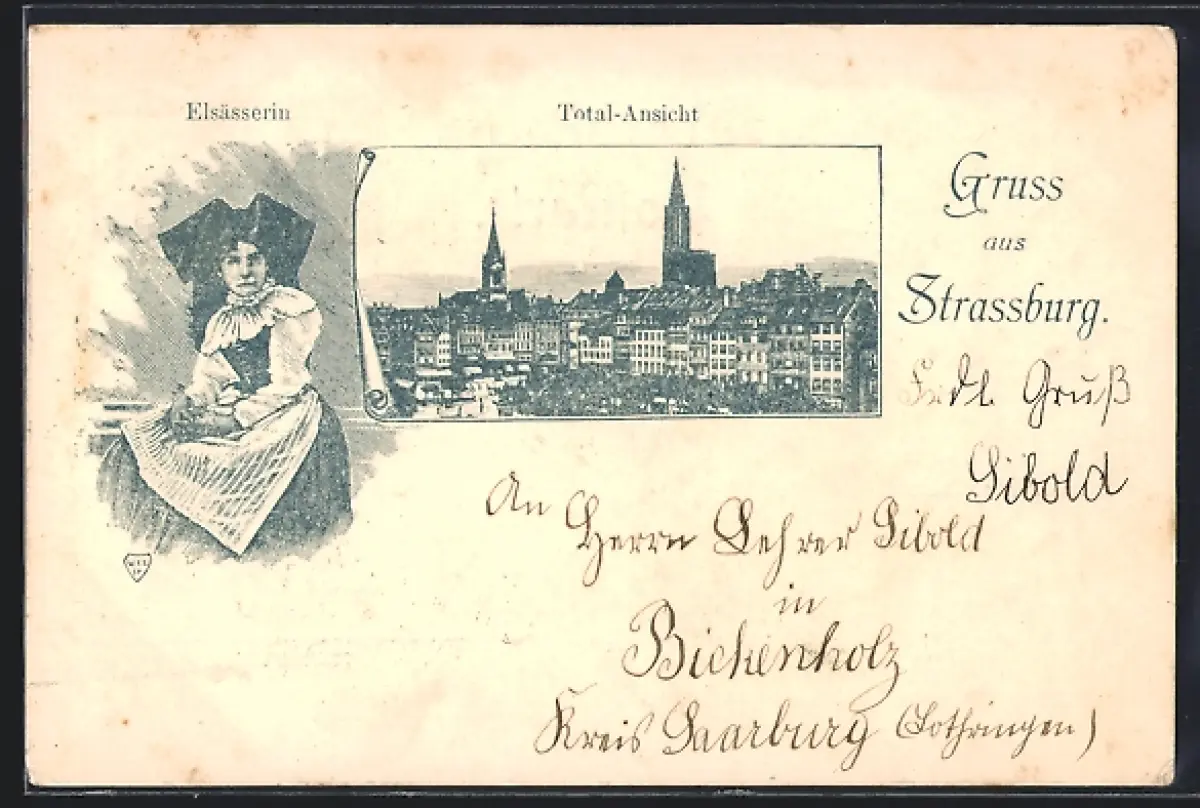 Elsässerin
Total-Ansicht
Gruss
aus
Strassburg.
Frdl. Gruß
Sibold
An
Herrn Lehrer Sibold
in
Bickenholz
Kreis Saarburg (Lothringen)